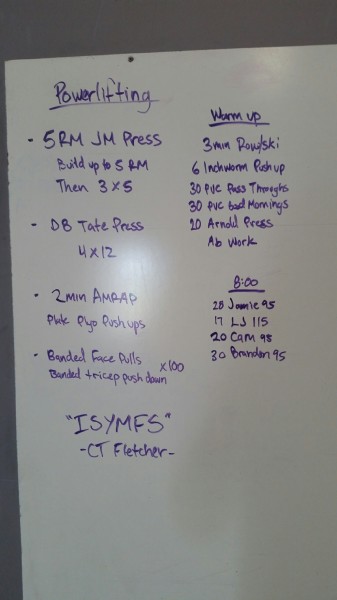 Powerlifting
- 5RM JM Press
Build up to 5 RM
Then 3x5
- DB Tate Press
4x12
- 2min AMRAP
Plate Plyo Push ups
- Banded Face Pulls
x100
Banded tricep push down
"ISYMFS"
-CT Fletcher-
Warm up
3min Row/Ski
6 Inchworm Push up
30 PVC Pass Throughs
30 PVC Good Mornings
20 Arnold Press
Ab Work
8:00
28 Jamie 95
17 LJ 115
20 Cam 95
30 Brandon 95